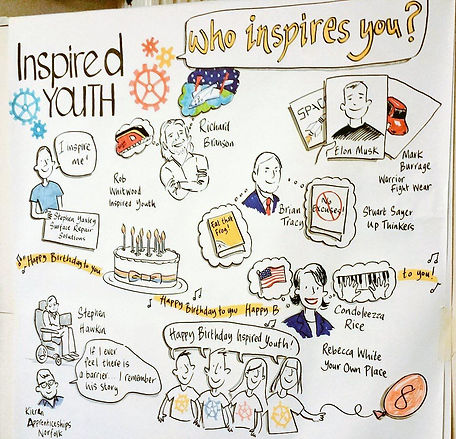 Inspired
YOUTH
who inspires you?
I inspire
me!
Richard
Branson
Rob
Whitwood
Inspired Youth
SPAC
Elon Musk
Mark
Burrage
Warrior
Fight Wear
Stephen Yaxley
Surface Repair
Solutions
Eat that
frog!
Brian
Tracy
No
Excuses!
Stuart Sayer
Up Thinkers
Happy Birthday to you
Happy Birthday to you Happy B
to you!
Condoleezza
Rice
Stephen
Hawkin
Happy Birthday Inspired Youth!
Rebecca White
Your Own Place
If I ever
feel there is
a barrier... I remember
his story
Kieran
Apprenticeships
Norfolk
8